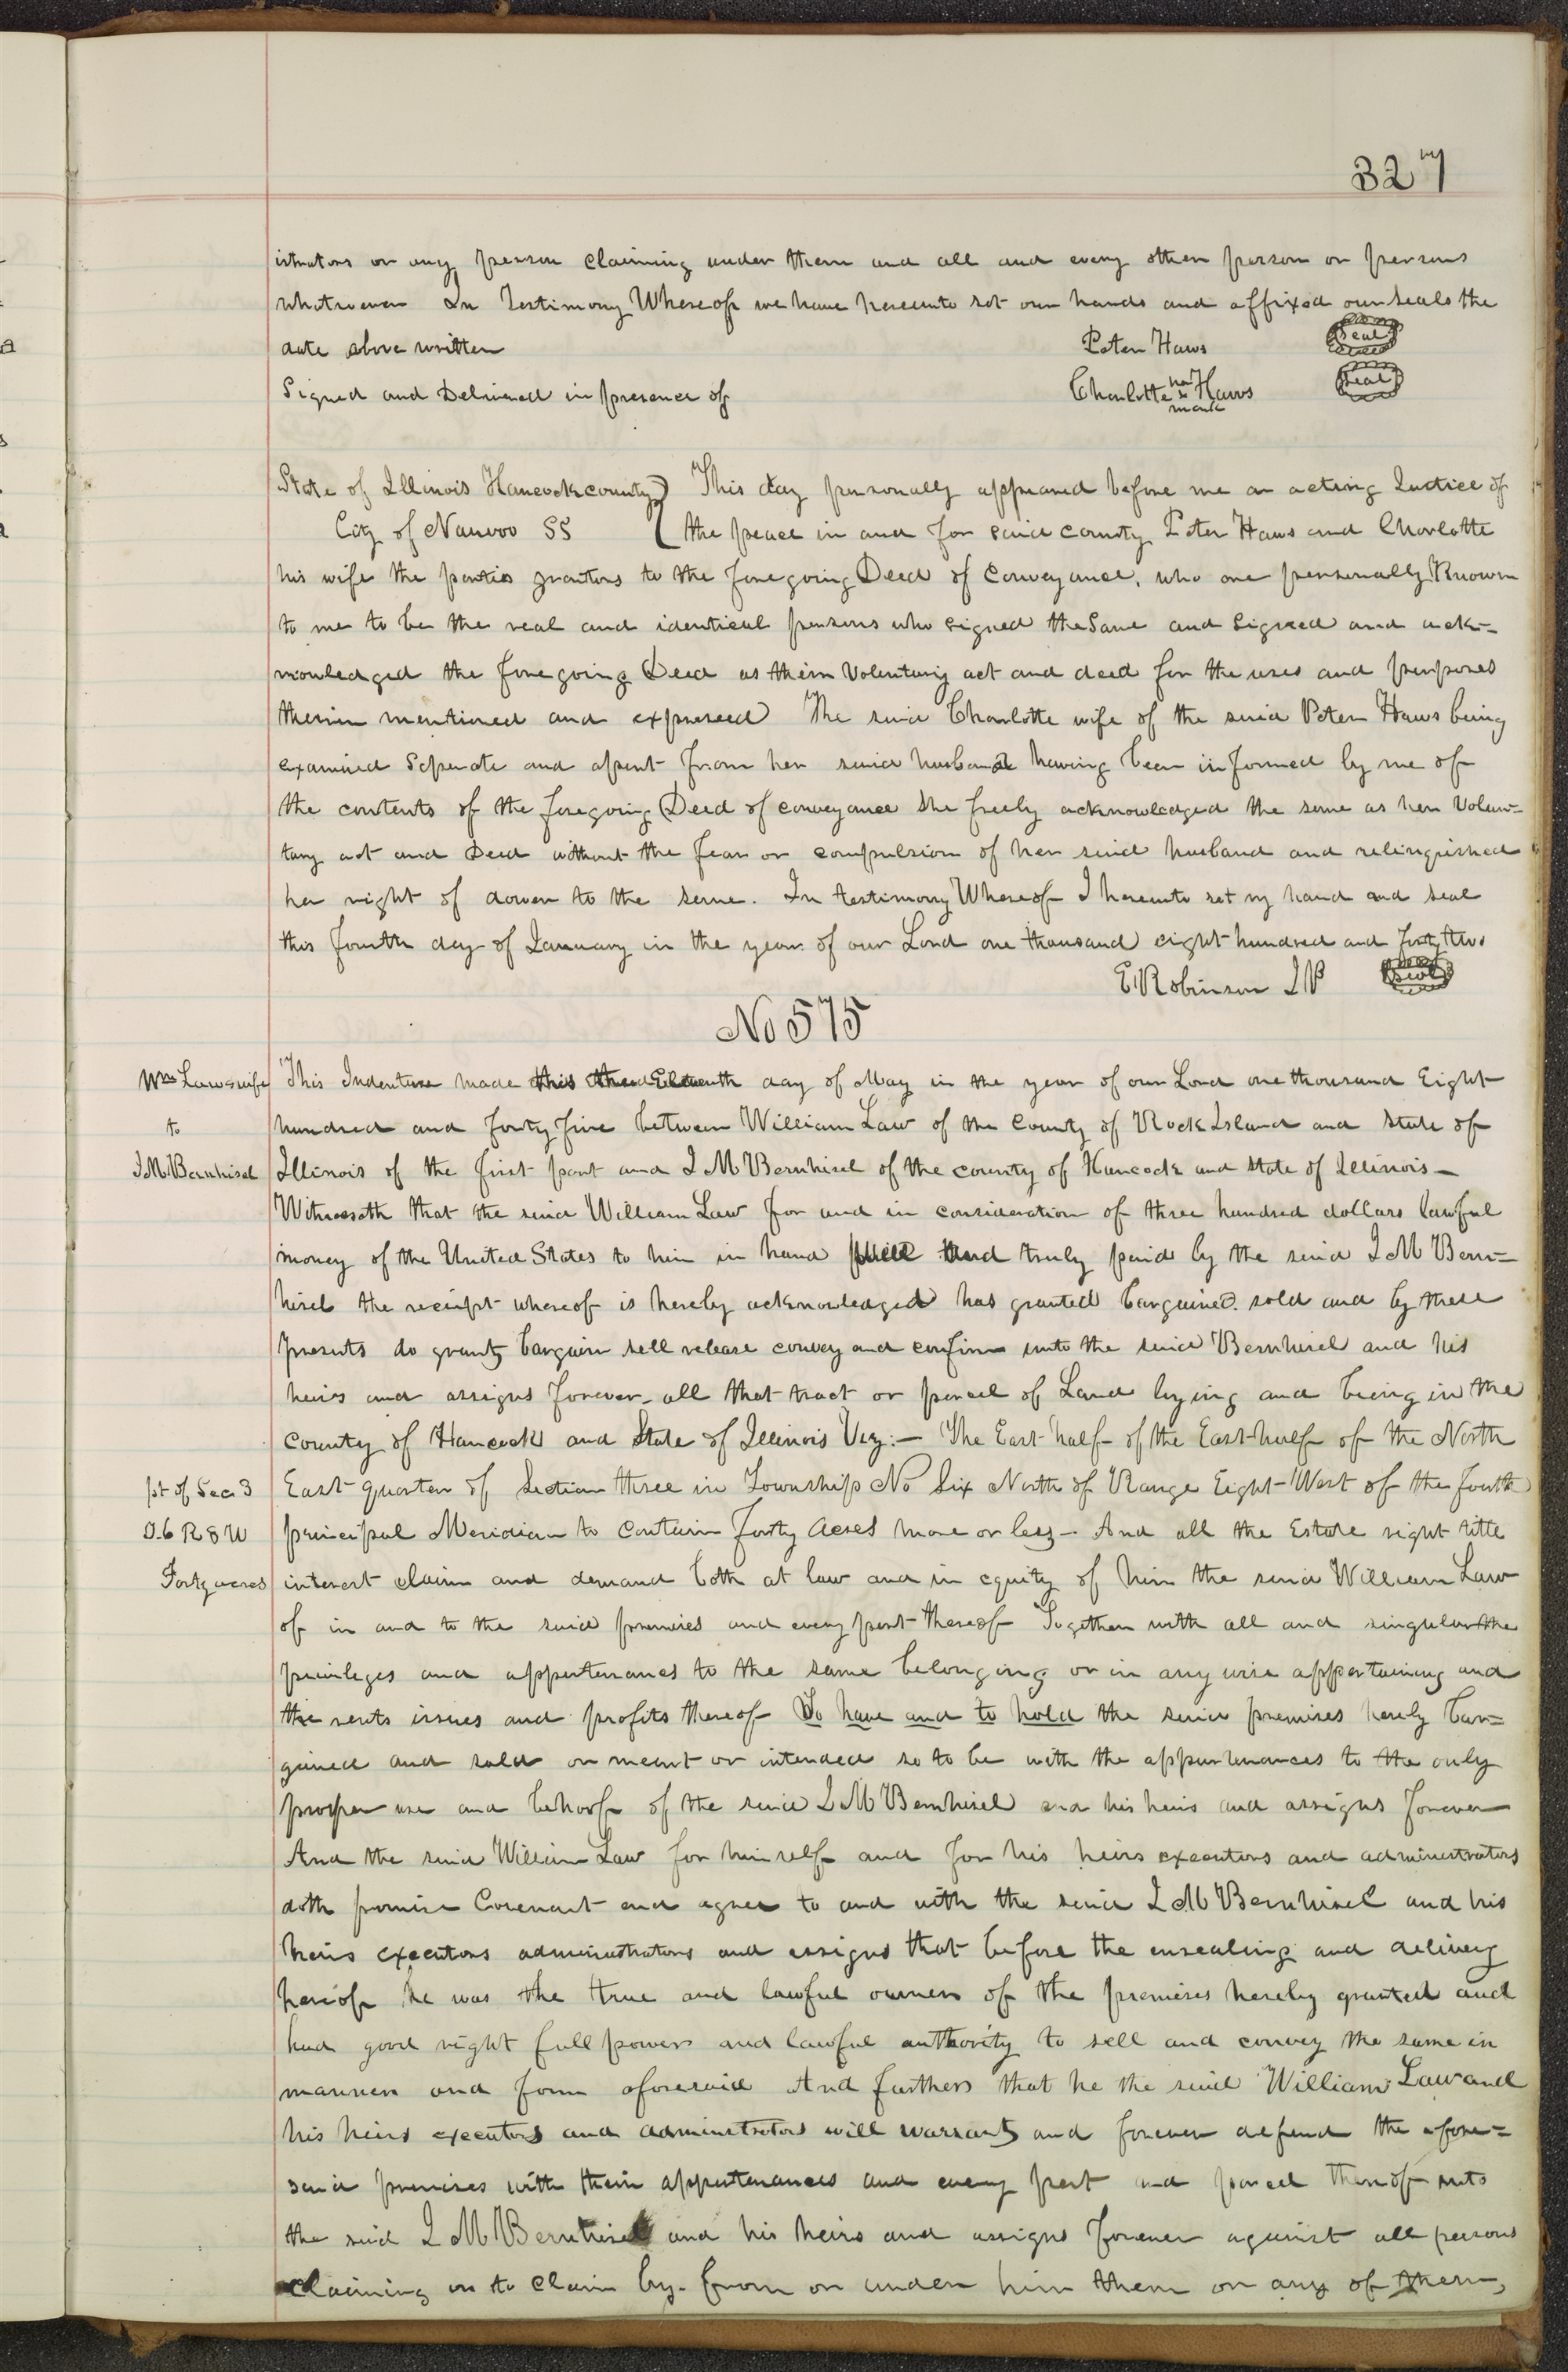 327
istrators or any person claiming under them and all and every other person or persons
whatsoever In Testimony Whereof we have hereunto set our hands and affixed our seals the
date above written Peter Haws Seal
Signed and Delivered in presence of Charlotte her x mark Haws Seal
State of Illinois Hancock county ) This day personally appeared before me an acting Justice of
City of Nauvoo SS ( the peace in and for said county Peter Haws and Charlotte
his wife the parties grantors to the foregoing Deed of Conveyance, who are personally Known
to me to be the real and identical persons who signed the Same and Signed and ack-
nowledged the foregoing Deed as their Voluntary act and deed for the uses and purposes
therein mentioned and expressed The said Charlotte wife of the said Peter Haws being
examined Seperate and apart from her said husband having been informed by me of
the contents of the foregoing Deed of conveyance She freely acknowledged the same as her Volun=
tary act and Deed without the fear or compulsion of her said husband and relinquished
her right of dower to the same. In testimony Whereof I hereunto set my hand and seal
this fourth day of January in the year of our Lord one thousand eight hundred and forty two
E. Robinson JP Seal
No 575
Wm Law & wife This Indenture made this the Eleventh day of May in the year of our Lord one thousand Eight
to hundred and forty five between William Law of the County of Rock Island and State of
J.M. Bernhisel Illinois of the first part and J M Bernhisel of the county of Hancock and State of Illinois—
Witnesseth that the said William Law for and in consideration of three hundred dollars lawful
money of the United States to him in hand well and truly paid by the said J M Bern=
hisel the receipt whereof is hereby acknowledged has granted bargained sold and by these
presents do grant, bargain sell release convey and confirm unto the said Bernhisel and his
heirs and assigns forever, all that tract or parcel of Land lying and being in the
county of Hancock and State of Illinois Viz:— The East half of the East half of the North
pt of Sec 3 East quarter of Section three in Township No Six North of Range Eight West of the fourth
T.6 R 8 W principal Meridian to Contain forty acres more or less— And all the Estate right title
Forty acres interest claim and demand both at law and in equity of him the said William Law
of in and to the said premises and every part thereof Together with all and singular the
privileges and appurtenances to the same belonging or in any wise appertaining and
the rents issues and profits thereof To have and to hold the said premises hereby bar=
gained and sold or meant or intended so to be with the appurtenances to the only
proper use and behoof of the said J M Bernhisel and his heirs and assigns forever
And the said William Law for himself and for his heirs executors and administrators
doth promise Covenant and agree to and with the said J M Bernhisel and his
heirs executors administrators and assigns that before the ensealing and delivery
hereof he was the true and lawful owner of the premises hereby granted and
had good right full power and lawful authority to sell and convey the same in
manner and form aforesaid And further that he the said William Law and
his heirs executors and administrators will warrant and forever defend the afore=
said premises with their appurtenances and every part and parcel thereof unto
the said J M Bernhisel and his heirs and assigns forever against all persons
claiming or to claim by. from or under him them or any of them,